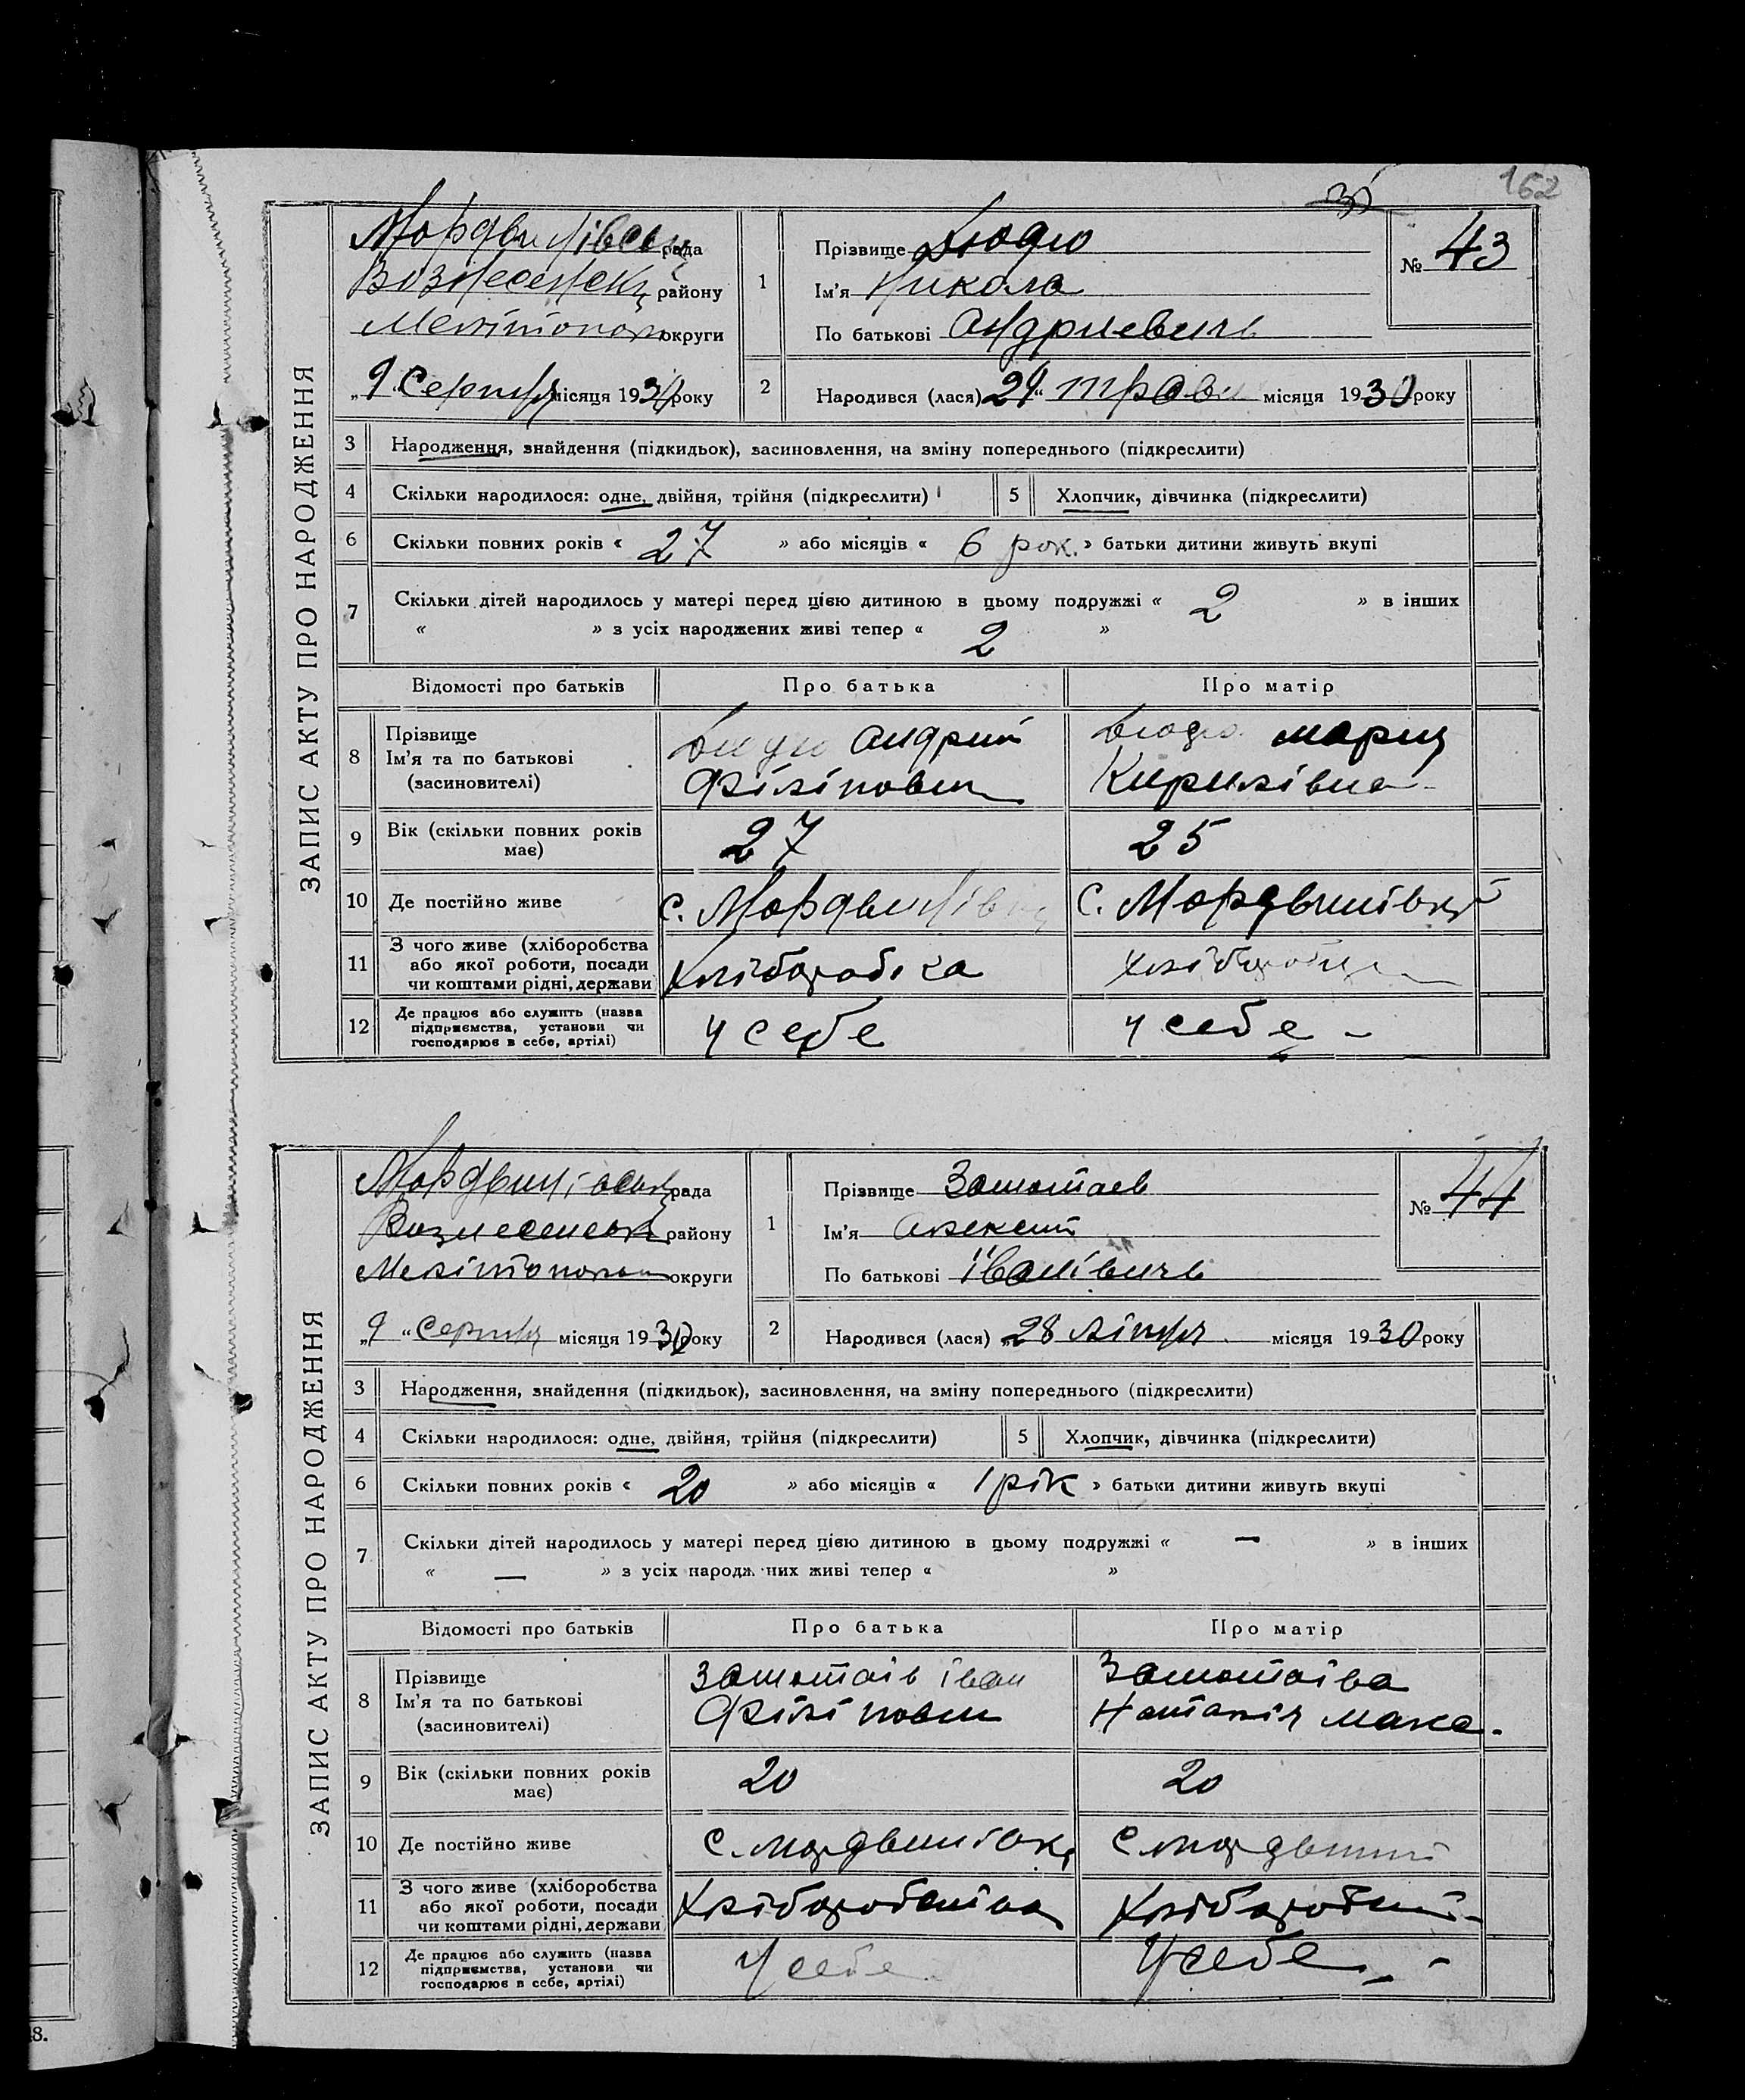 162
ЗАПИС АКТУ ПРО НАРОДЖЕННЯ
Мордвинівськ рада
Вознесенськ району
Мелітопол округи
„9 Серпня місяця 1930 року
1
Прізвище
Ім'я Микола
По батькові Андриевичь
№ 43
2
Народився (лася) „29“ травн місяця 1930 року
3 Народження, знайдення (підкидьок), засиновлення, на зміну попереднього (підкреслити)
4 Скільки народилося: одне, двійня, трійня (підкреслити) 5 Хлопчик, дівчинка (підкреслити)
6 Скільки повних років « 27 » або місяців « 6 рок. » батьки дитини живуть вкупі
7 Скільки дітей народилось у матері перед цією дитиною в цьому подружжі « 2 » в інших
« » з усіх народжених живі тепер « 2 »
Відомості про батьків Про батька Про матір
8 Прізвище
Ім'я та по батькові
(засиновителі)
Андрий
Філіпович
Кирилівна
9 Вік (скільки повних років має) 27 25
10 Де постійно живе с. Мордвинівка с. Мордвинівка
11 З чого живе (хліборобства
або якої роботи, посади
чи коштами рідні, держави
12 Де працює або служить (назва
підприємства, установи чи
господарює в себе, артілі)
у себе у себе -
ЗАПИС АКТУ ПРО НАРОДЖЕННЯ
Мордвинівськ рада
Вознесенськ району
Мелітопол округи
„9“ Серпня місяця 1930 року
1
Прізвище Золотаев
Ім'я Алексей
По батькові Іванівичь
№ 44
2
Народився (лася) „28 Ліпня місяця 1930 року
3 Народження, знайдення (підкидьок), засиновлення, на зміну попереднього (підкреслити)
4 Скільки народилося: одне, двійня, трійня (підкреслити) 5 Хлопчик, дівчинка (підкреслити)
6 Скільки повних років « 20 » або місяців « 1 рік » батьки дитини живуть вкупі
7 Скільки дітей народилось у матері перед цією дитиною в цьому подружжі « — » в інших
« — » з усіх народж них живі тепер « »
Відомості про батьків Про батька Про матір
8 Прізвище
Ім'я та по батькові
(засиновителі)
Золотаів Іван
Філіпович
Золотаіва
Наталія Мака.
9 Вік (скільки повних років має) 20 20
10 Де постійно живе с. Мордвинівка с. Мордвин
11 З чого живе (хліборобства
або якої роботи, посади
чи коштами рідні, держави
12 Де працює або служить (назва
підприємства, установи чи
господарює в себе, артілі)
У себе У себе -
8.